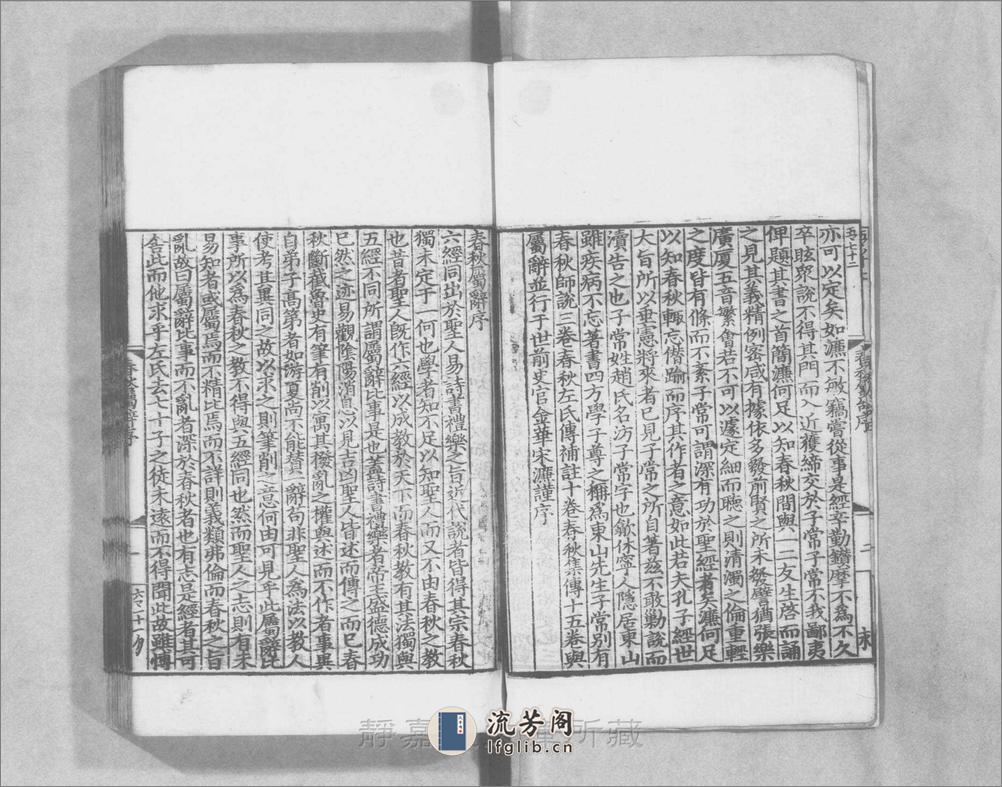 亦可以定矣如濂不敏竊嘗從事是經辛勤鑽摩不為不久
卒眩衆說不得其門而入近獲締交於子常子常不我鄙夷
俾題其書之首簡濂何足以知春秋間與一二友生啓而誦
之見其義精例密咸有據依多發前賢之所未發譬猶張樂
廣厦五音繁會若不可以遽定細而聽之則清濁之倫重輕
之度皆有條而不紊子常可謂深有功於聖經者矣濂何足
以知春秋輒忘僭踰而序其作者之意如此若夫孔子經世
大旨所以垂憲將來者已見子常之所自著茲不敢勦說而
瀆告之也子常姓趙氏名汸子常字也歙休寧人隱居東山
雖疾病不忘著書四方學子尊之稱為東山先生子常別有
春秋師說三卷春秋左氏傳補註十卷春秋集傳十五卷與
屬辭並行于世前史官金華宋濂謹序
春秋屬辭序
六經同出於聖人易詩書禮樂之旨近代說者皆得其宗春秋
獨未定于一何也學者知不足以知聖人而又不由春秋之教
也昔者聖人既作六經以成教於天下而春秋教有其法獨與
五經不同所謂屬辭比事是也蓋詩書禮樂者帝王盛德成功
已然之迹易觀陰陽消息以見吉凶聖人皆述而傳之而已春
秋斷截魯史有筆有削以寓其撥亂之權與述而不作者事異
自弟子高第者如游夏尚不能賛一辭苟非聖人為法以教人
使考其異同之故以求之則筆削之意何由可見乎此屬辭比
事所以為春秋之教不得與五經同也然而聖人之志則有未
易知者或屬焉而不精比焉而不詳則義類弗倫而春秋之旨
亂故曰屬辭比事而不亂者深於春秋者也有志是經者其可
舍此而他求乎左氏去七十子之徒未遠而不得聞此故雖博
春秋屬辭序
靜嘉
所藏
流芳阁
lfglib.cn